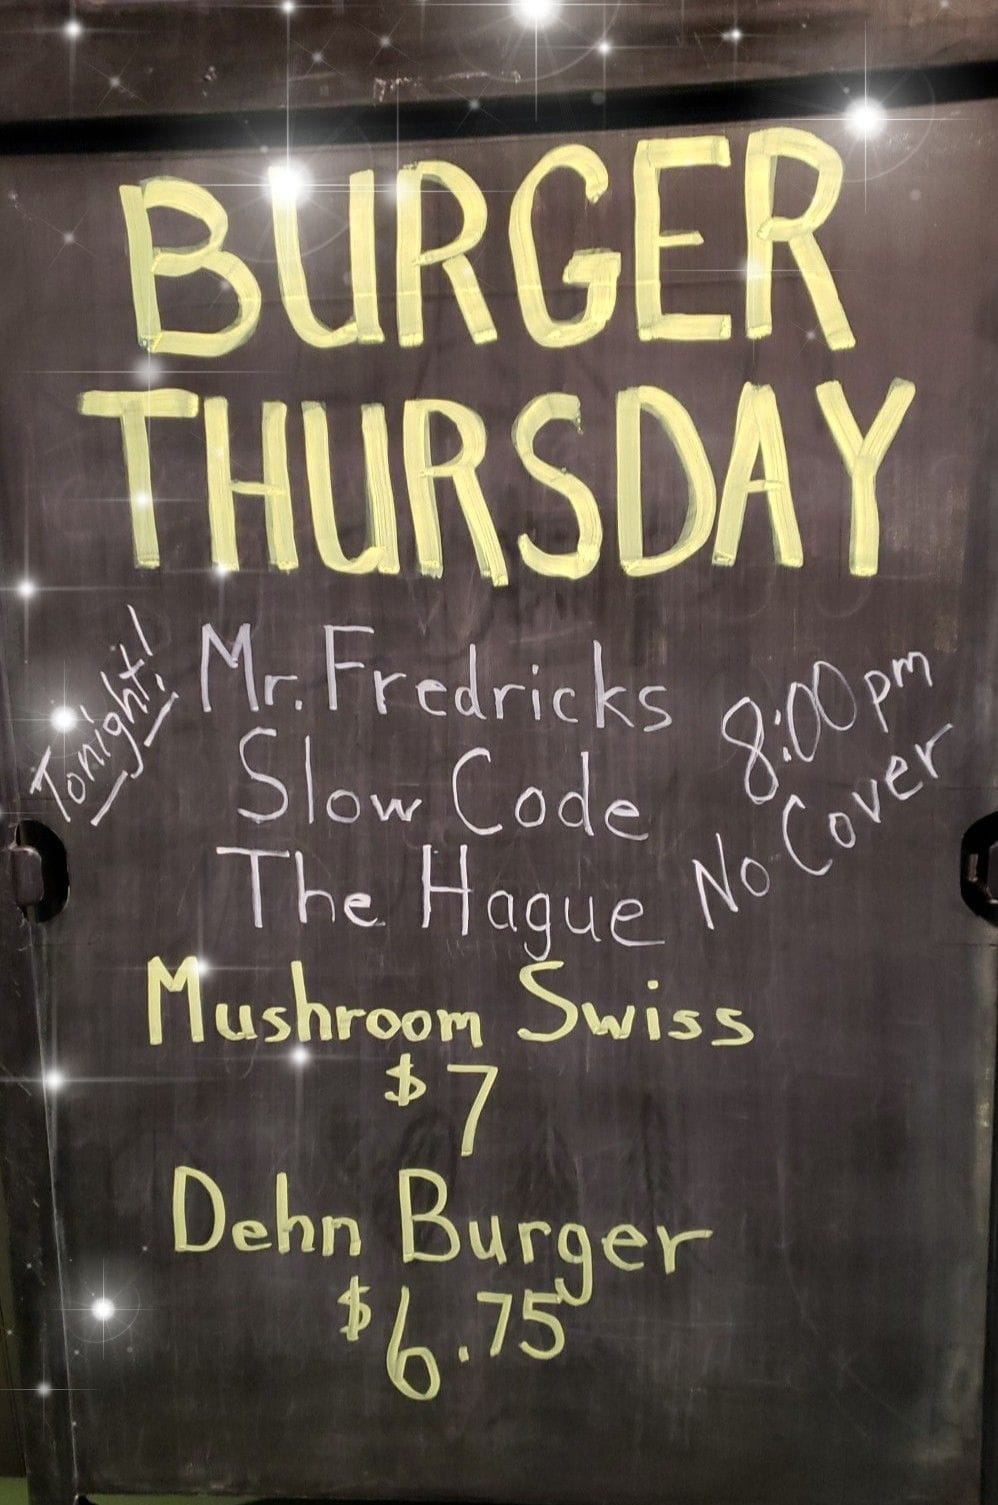 BURGER
THURSDAY
Tonight!
Mr. Fredricks
Slow Code
The Hague
8:00pm
No Cover
Mushroom Swiss
$7
Dehn Burger
$6.75